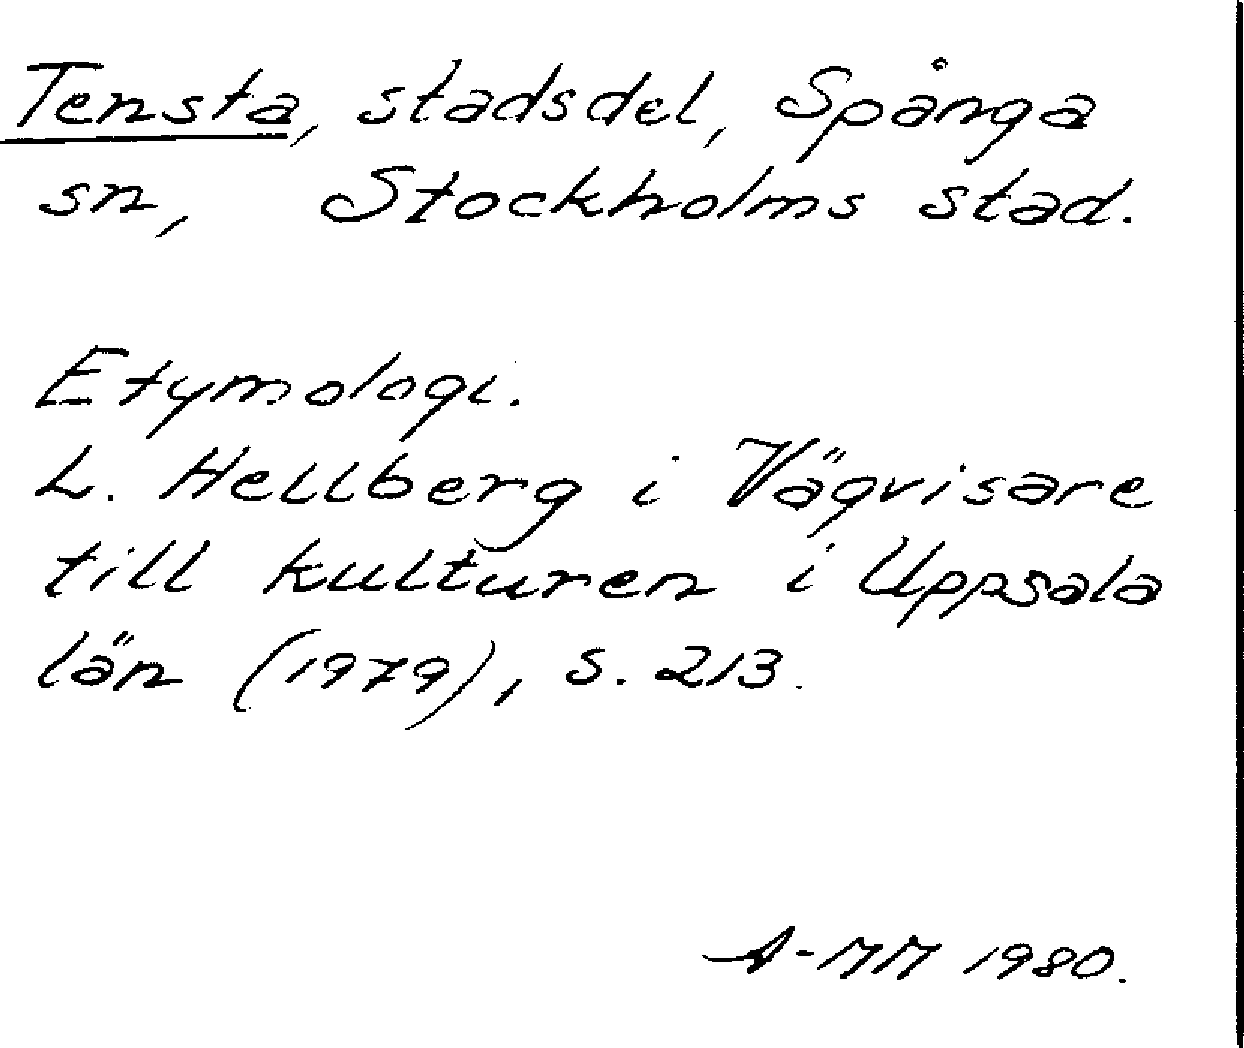 Tensta, stadsdel, Spånga
sn, Stockholms stad.
Etymologi.
L. Hellberg i Vägvisare
till kulturen i Uppsala
län (1979), s. 213.
A-MM 1980.